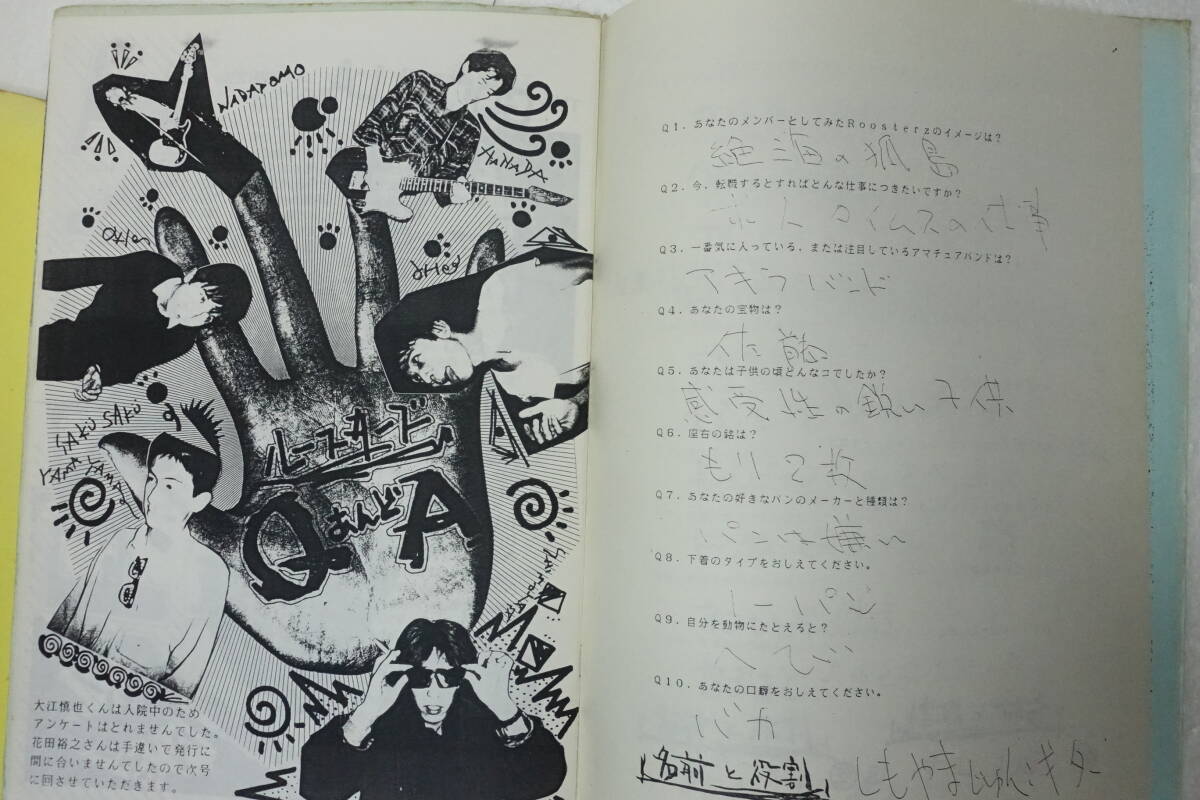 NADADOMO
HANADA
SAKU SAKU
YAMA YAMA
ルースターズ
QあんどA
大江慎也くんは入院中のため
アンケートはとれませんでした。
花田裕之さんは手違いで発行に
間に合いませんでしたので次号
に回させていただきます。
Q1．あなたのメンバーとしてみたRoosterzのイメージは？
絶海の孤島
Q2．今、転職するとすればどんな仕事につきたいですか？
タイムスの仕事
Q3．一番気に入っている、または注目しているアマチュアバンドは？
アキラバンド
Q4．あなたの宝物は？
Q5．あなたは子供の頃どんなコでしたか？
感受性の鋭い子供
Q6．座右の銘は？
もり2枚
Q7．あなたの好きなパンのメーカーと種類は？
パンは嫌い
Q8．下着のタイプをおしえてください。
ノーパン
Q9．自分を動物にたとえると？
へび
Q10．あなたの口癖をおしえてください。
バカ
名前と役割
しもやまじゅん：ギター